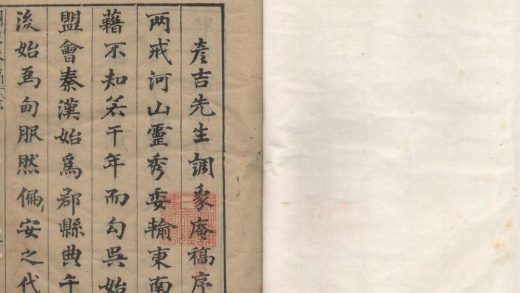 彥吉先生調象庵稿序
两戒河山靈秀委輸東南
藉不知若干年而勾吳始
盟會秦漢始為郡縣典午
後始為甸服然偏安之代